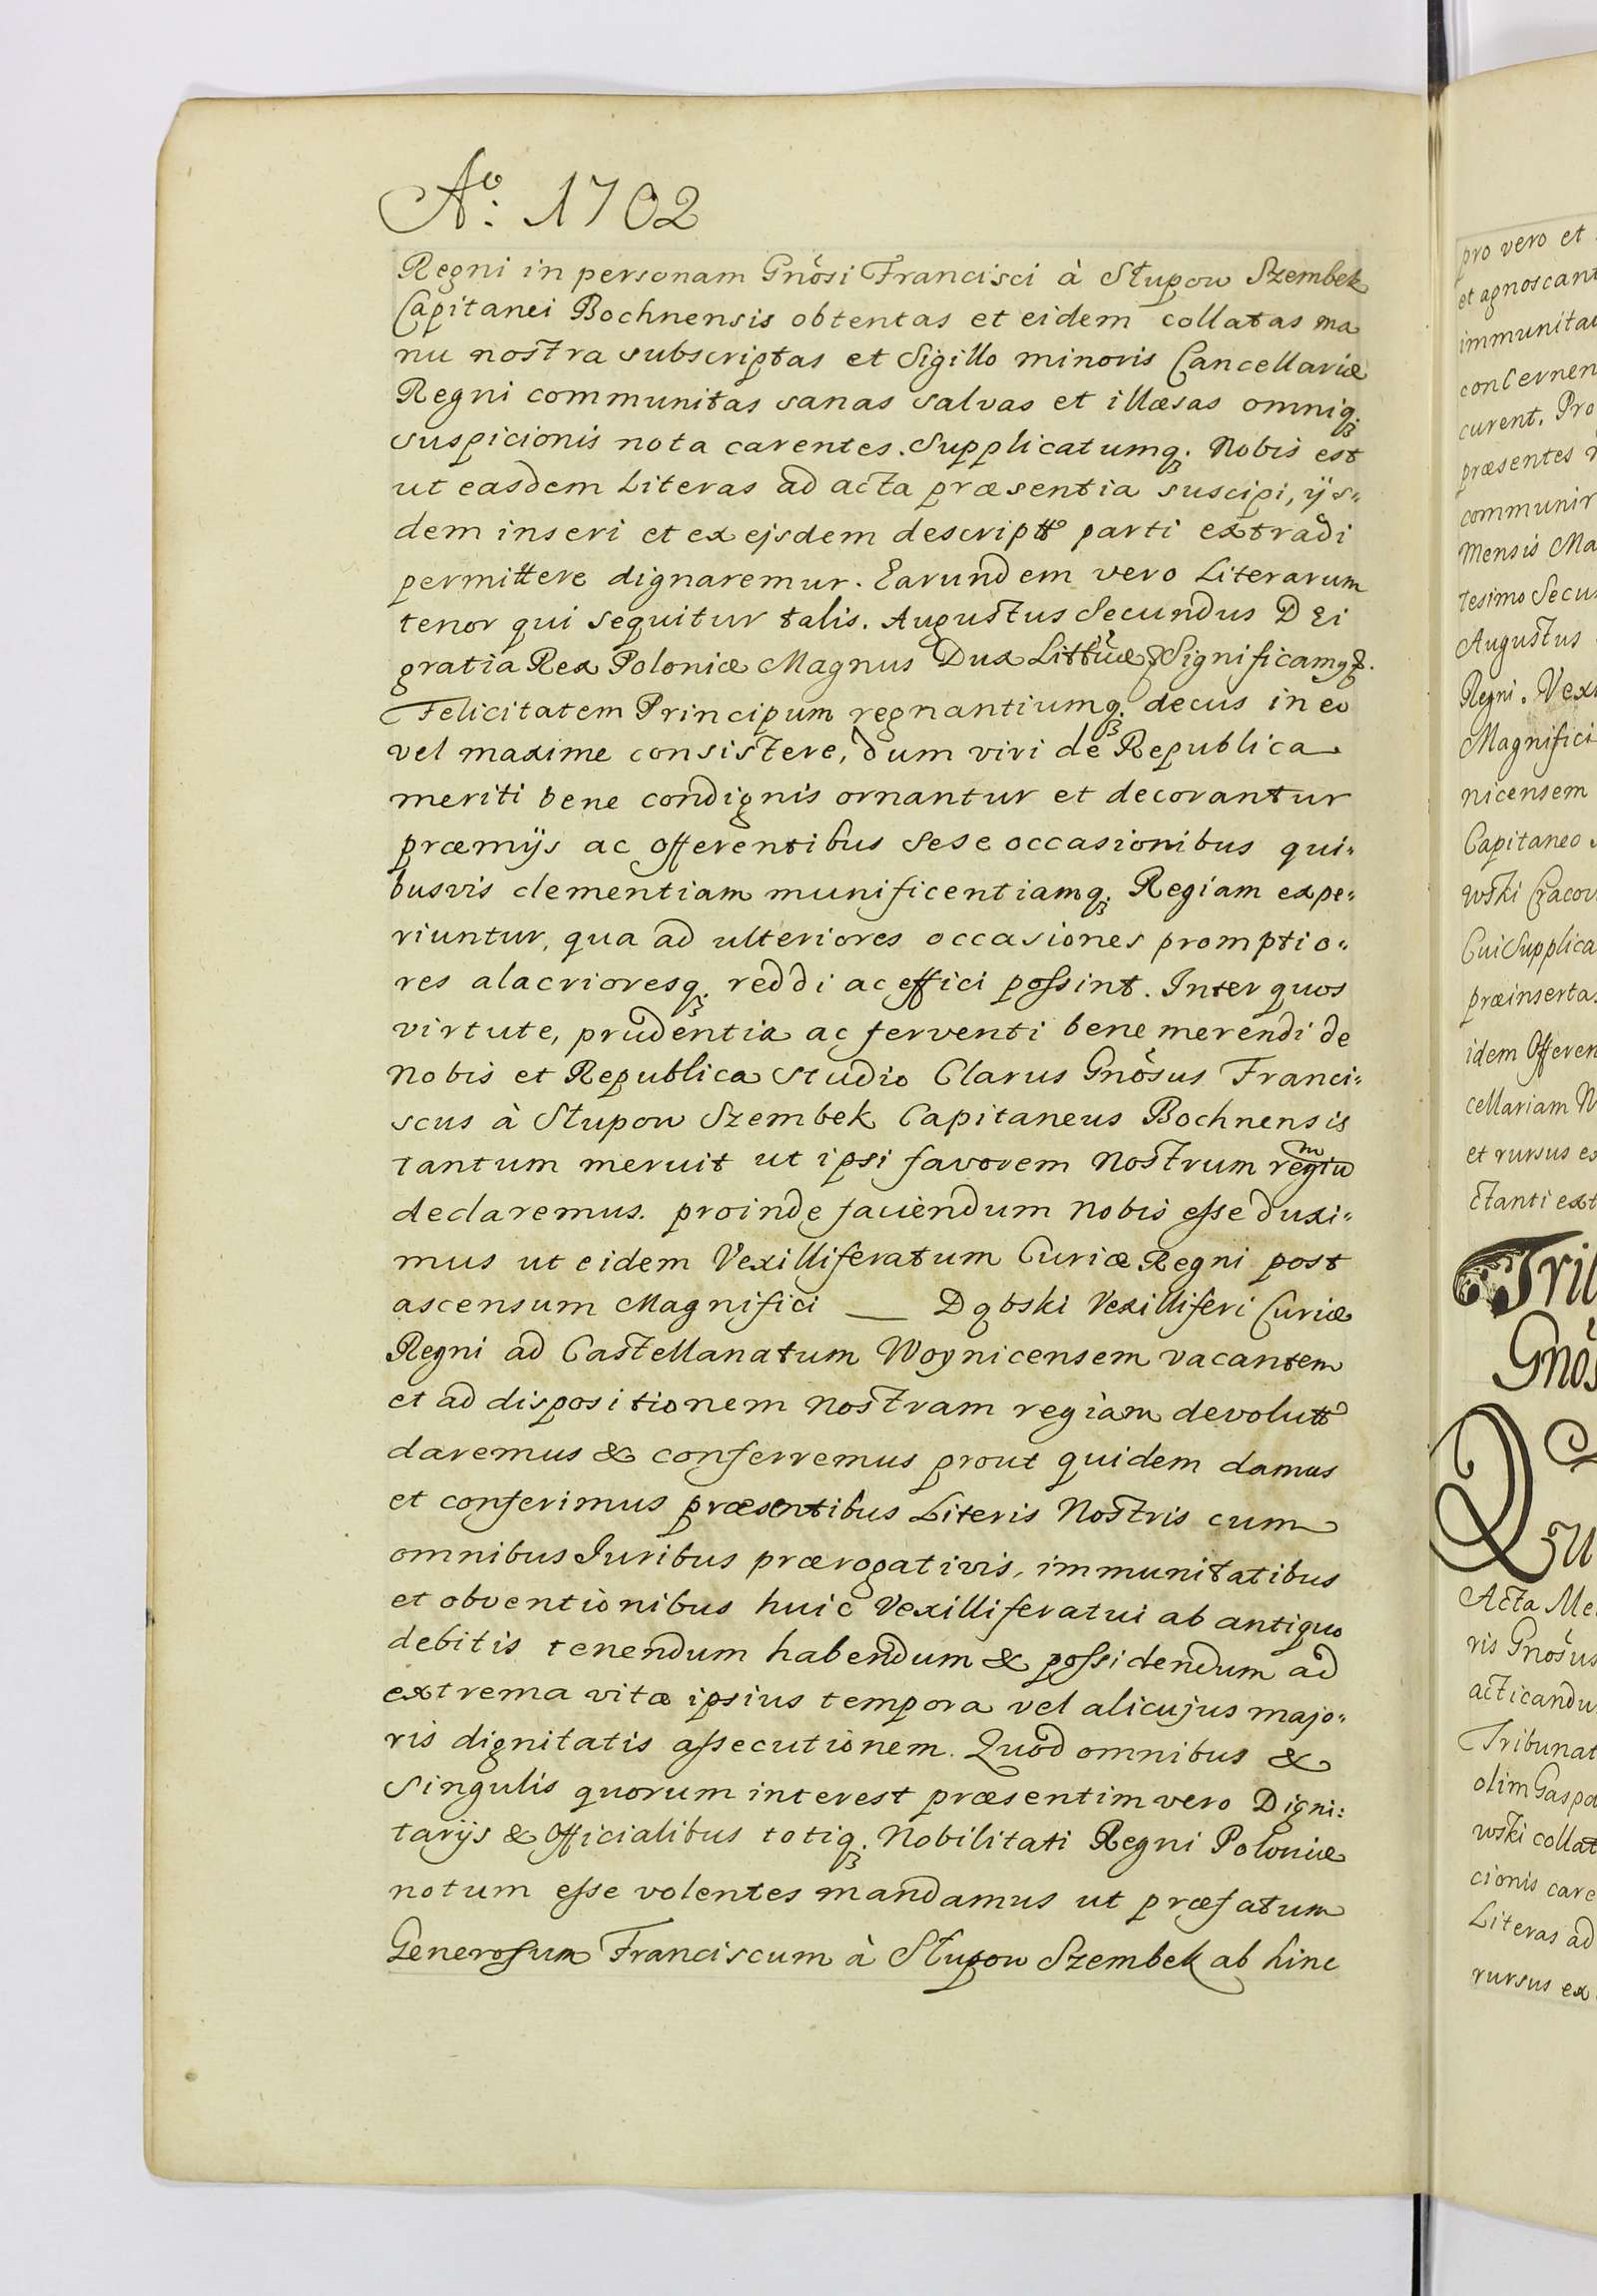 Aº: 1702
Regni in personam Gnõsi Francisci à Słupow Szembek
Capitanei Bochnensis obtentas et eidem collatas ma
nu nostra subscriptas et Sigillo minoris Cancellariæ
Regni communitas sanas salvas et illæsas omniq;
suspicionis nota carentes. Supplicatumq; Nobis est
ut easdem Literas ad acta præsentia suscipi, ijs-
dem inseri et ex ejsdem descriptº parti extradi
permittere dignaremur. Earundem vero Literarum
tenor qui sequitur talis. Augustus Secundus DEi
gratia Rex Poloniæ Magnus Dux Littüæ & Significamq;.
Felicitatem Principum regnantiumq; decus in eo
vel maxime consistere, dum viri de Republica
meriti bene condignis ornantur et decorantur
præmijs ac offerentibus sese occasionibus qui-
busvis clementiam munificentiamq; Regiam expe-
riuntur, qua ad ulteriores occasiones promptio-
res alacrioresq; reddi ac effici possint. Inter quos
virtute, prudentia ac ferventi bene merendi de
Nobis et Republica studio Clarus Gnõsus Franci-
scus à Słupow Szembek Capitaneus Bochnensis
tantum meruit ut ipsi favorem Nostrum regiuͫ
declaremus. proinde faciendum Nobis esse duxi-
mus ut eidem Vexilliferatum Curiæ Regni post
ascensum Magnifici __ Dąbski Vexilliferi Curiæ
Regni ad Castellanatum Woynicensem vacantem
et ad dispositionem Nostram regiam devolutº
daremus & conferremus prout quidem damus
et conferimus præsentibus Literis Nostris cum
omnibus Juribus prærogativis, immunitatibus
et obventionibus huic Vexilliferatui ab antiquo
debitis tenendum habendum & possidendum ad
extrema vitæ ipsius tempora vel alicujus majo-
ris dignitatis assecutionem. Quod omnibus &
singulis quorum interest præsentim vero Digni-
tarijs & Officialibus totiq; Nobilitati Regni Poloniæ
notum esse volentes mandamus ut præfatum
Generosum Franciscum à Słupow Szembek ab hinc
pro vero et
et agnoscant
immunitat
concernen
curent. Pro
præsentes
communir
Mensis Ma
tesimo Secu
Augustus
Regni. Vex
Magnifici
nicensem
Capitaneo
wski Cracov
Cui Supplica
præinsertas
idem Offeren
cellariam N
et rursus ex
ctanti ext
Trib
Gnõs
Acta Me
ris Gnõsus
acticandu
Tribunat
olim Gaspa
wski collat
cionis care
Literas ad
rursus ex